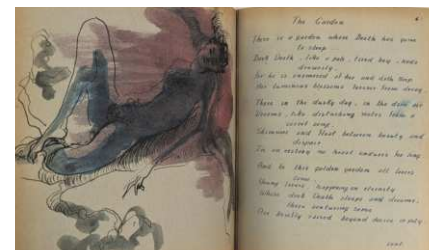 The Garden
6
There is a garden where Death has gone
to sleep
Dark Death, like a pale, tired boy, nods
drowsily,
For he is enamored of her and doth keep
Her luminous blossoms forever from decay.
There in the dusty day, in the dim
Dreams, like disturbing notes from a
secret song,
Shimmer and float between beauty and
despair
In an ecstasy no heart endures for long
And to this golden garden all lovers
come
Young lovers happening on eternity
Where dark Death sleeps and dreams,
these venturing some
Are briefly raised beyond desire